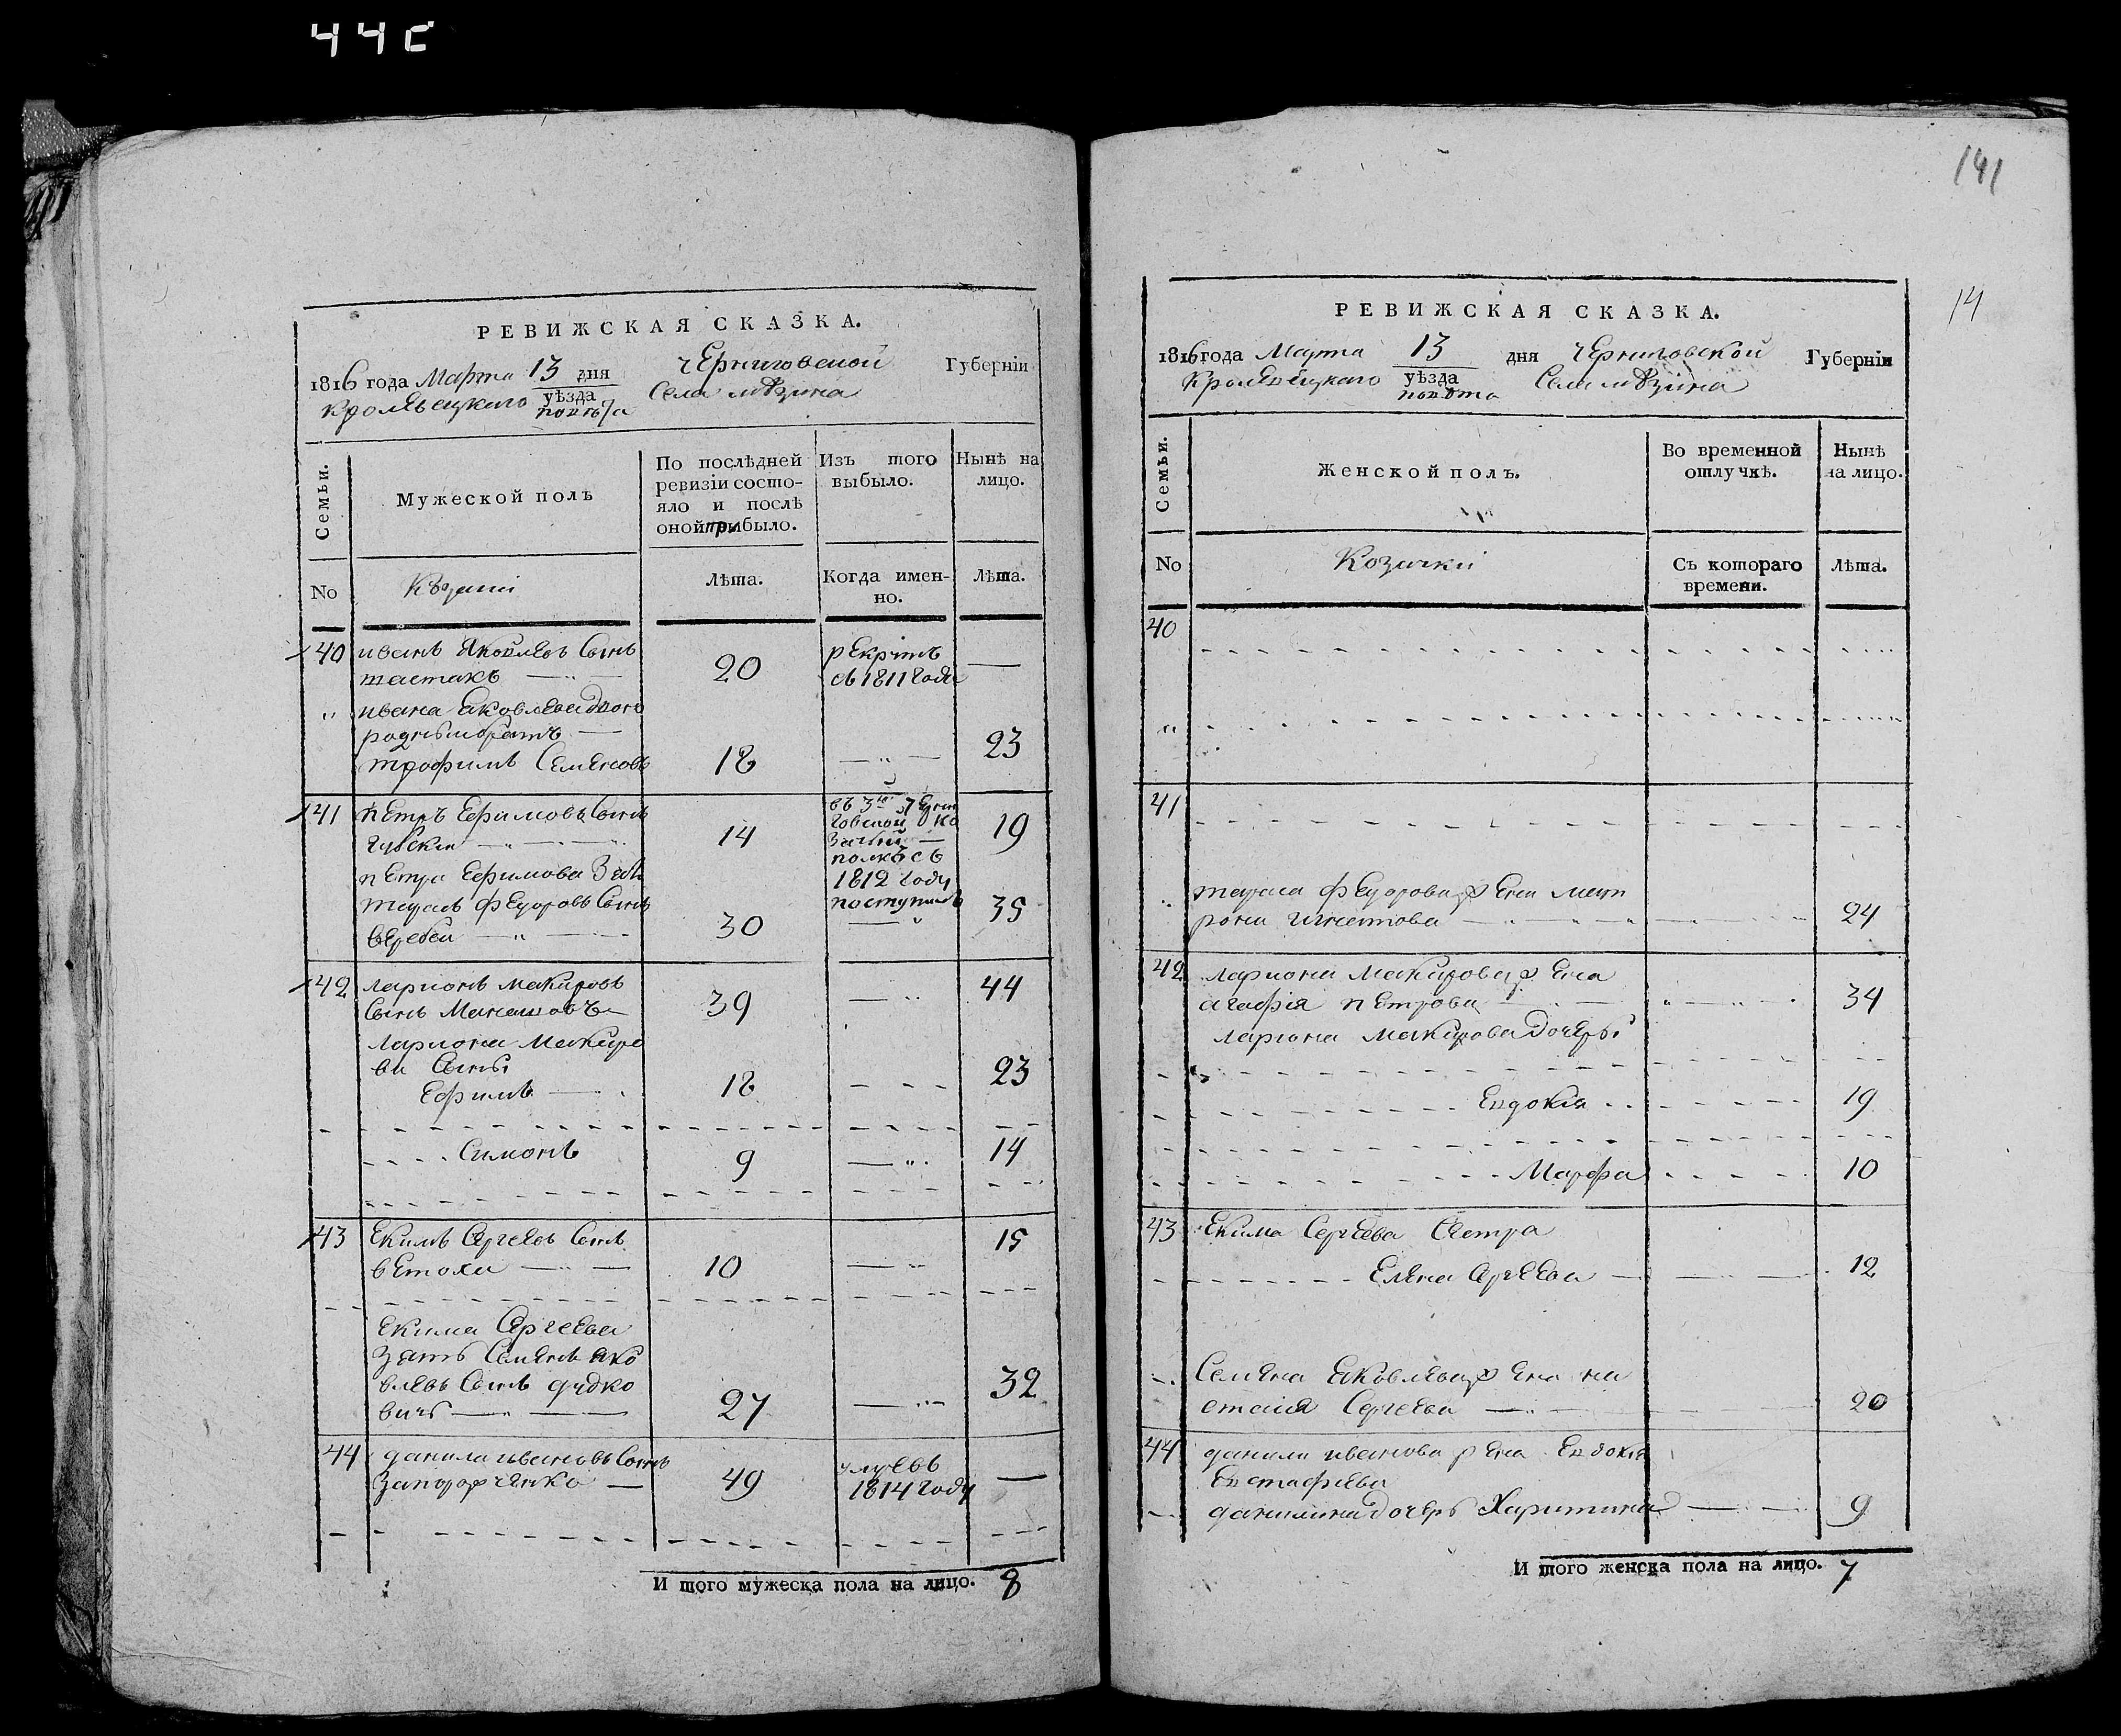 44C
РЕВИЖСКАЯ СКАЗКА.
1816 года Марта 13 дня Черниговской Губерніи
Кролевецкаго уѣзда Села мѣзина
повѣта
Семьи.
Мужеской полъ
По послѣдней ревизіи состояло и послѣ оной прибыло.
Изъ того выбыло.
Нынѣ на лицо.
No
Козаки
Лѣта.
Когда именно.
Лѣта.
40 иванъ Яковлевъ Сынъ
шастакъ 20 рекрутъ
съ 1811 года —
ивана Яковлева двою
родныйбратъ —
трофимъ Семеновъ 18 23
41 петръ Ефимовъ Сынъ
14 въ 3й Черни
говской ко
зачий
полкъ съ
1812 году
поступилъ 19
петра Ефимова Зять
тарасъ федоровъ Сынъ
веребей 30 35
42 ларионъ макаровъ
Сынъ 39 44
лариона макаро
ва Сыны
Ефимъ 18 23
Симонъ 9 14
43 Екимъ Сергеевъ Сынъ
ветоха 10 15
Екима Сергеева
Зять Семенъ яко
влевъ Сынъ дудко
вичъ 27 32
44 данила ивановъ Сынъ
Запорожченко 49 умре въ
1814 году —
И того мужеска пола на лицо. 8
141
14
РЕВИЖСКАЯ СКАЗКА.
1816 года Марта 13 дня Черниговской Губерніи
Кролевецкаго уѣзда Села мѣзина
повѣта
Семьи.
Женской полъ.
Во временной отлучкѣ.
Нынѣ на лицо.
No
Козачки
Съ котораго времени.
Лѣта.
40
41
тараса федорова жена мат
рона игнатова 24
42 лариона макарова жена
агафія петрова 34
лариона макарова дочеры
Евдокия 19
Марфа 10
43 Екима Сергеева Сестра
Елена Сергеева 12
Семена Яковлева жена на
стасія Сергеева 20
44 данила иванова жена Евдокия
Евстафиева
данилина дочерь Харитина 9
И того женска пола на лицо. 7